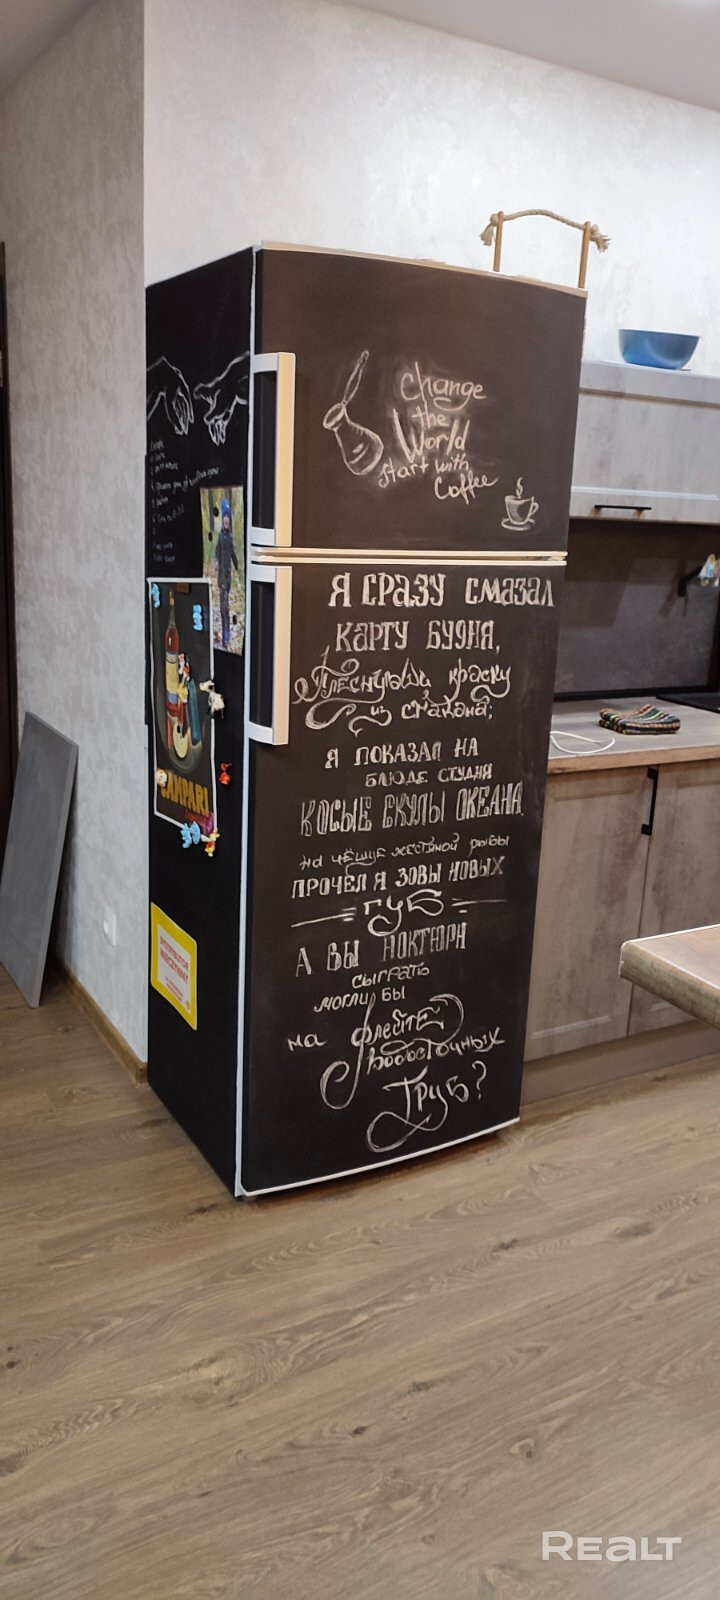 Change
the
World
start with
Coffee
Я СРАЗУ СМАЗАЛ
КАРТУ БУДНЯ,
Плеснувши краску
из стакана;
Я ПОКАЗАЛ НА
БЛЮДЕ СТУДНЯ
КОСЫЕ СКУЛЫ ОКЕАНА.
НА ЧЕШУЕ ЖЕСТЯНОЙ РЫБЫ
ПРОЧЁЛ Я ЗОВЫ НОВЫХ
ГУБ
А ВЫ НОКТЮРН
СЫГРАТЬ
МОГЛИ БЫ
на флейте
водосточных
Труб?
CAMPARI
REALT